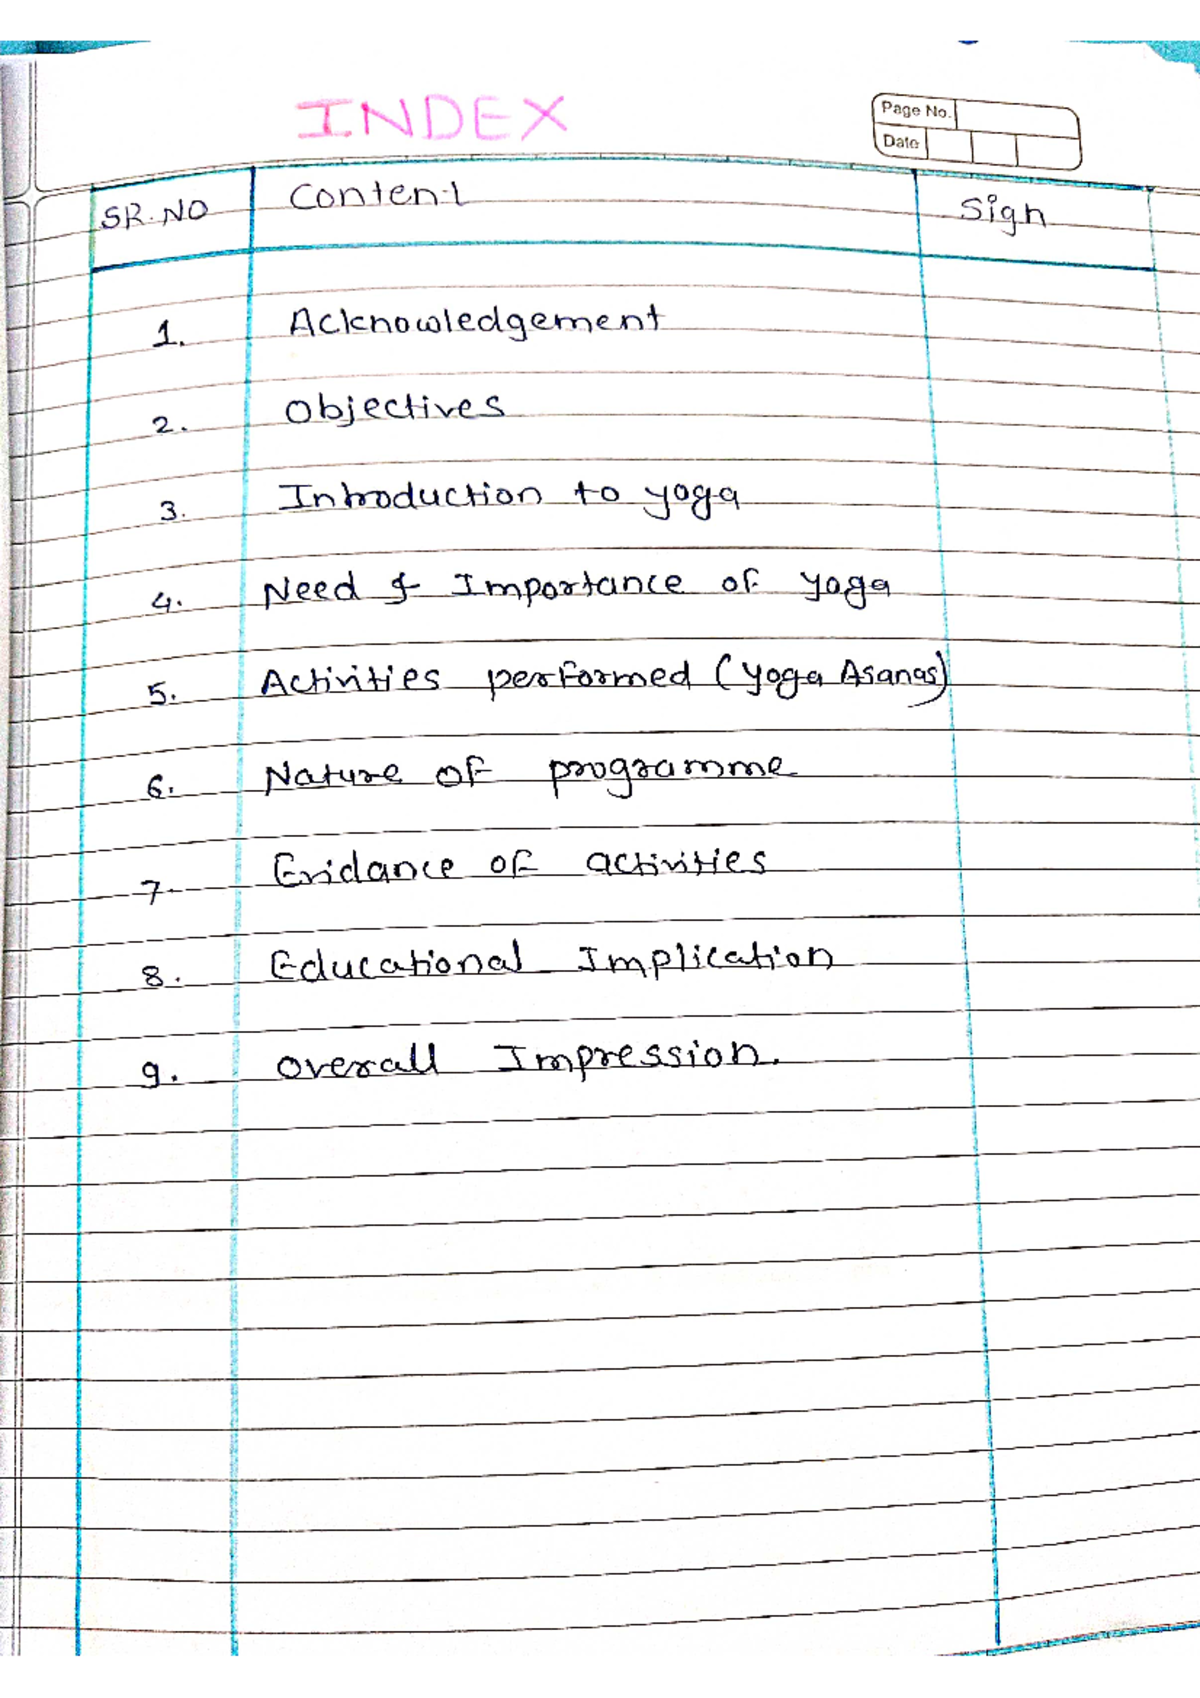 INDEX
Page No.
Date
SR.NO Content Sign
1. Acknowledgement
2. Objectives
3. Introduction to yoga
4. Need & Importance of yoga
5. Activities performed (yoga Asanas)
6. Nature of programme
7. Evidance of activities
8. Educational Implication
9. Overall Impression.